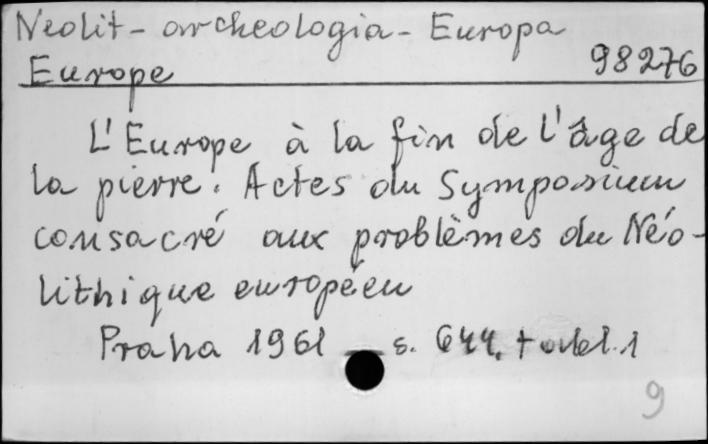 Neolit - archeologia - Europa
98276
Europe
L'Europe à la fin de l'âge de
la pierre. Actes du Symposium
consacré aux problèmes du Néo-
lithique européen
Praha 1961 s. 644, + 1
9